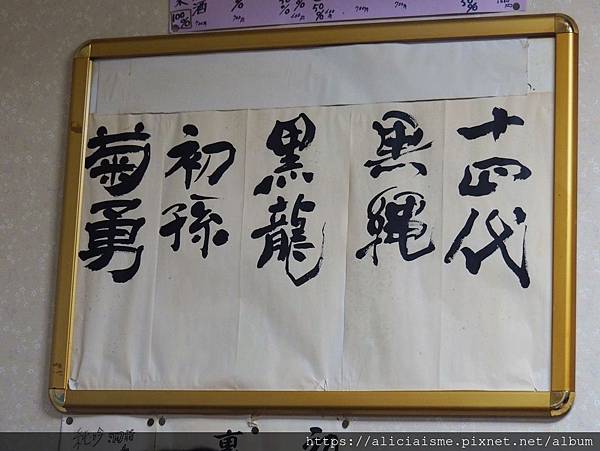 酒
100%
十四代
黒縄
黒龍
初孫
菊勇
純吟
https://aliciaisme.pixnet.net/album